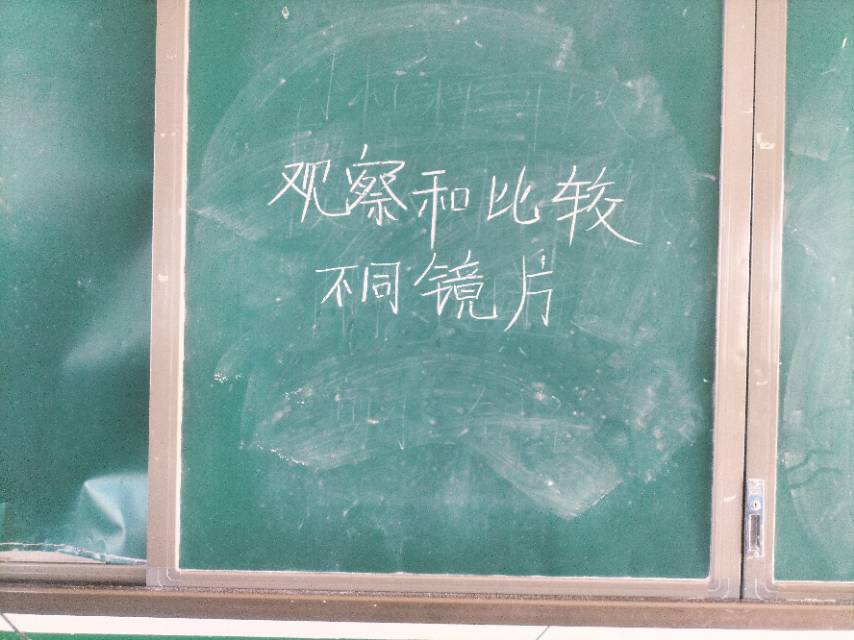 观察和比较
不同镜片